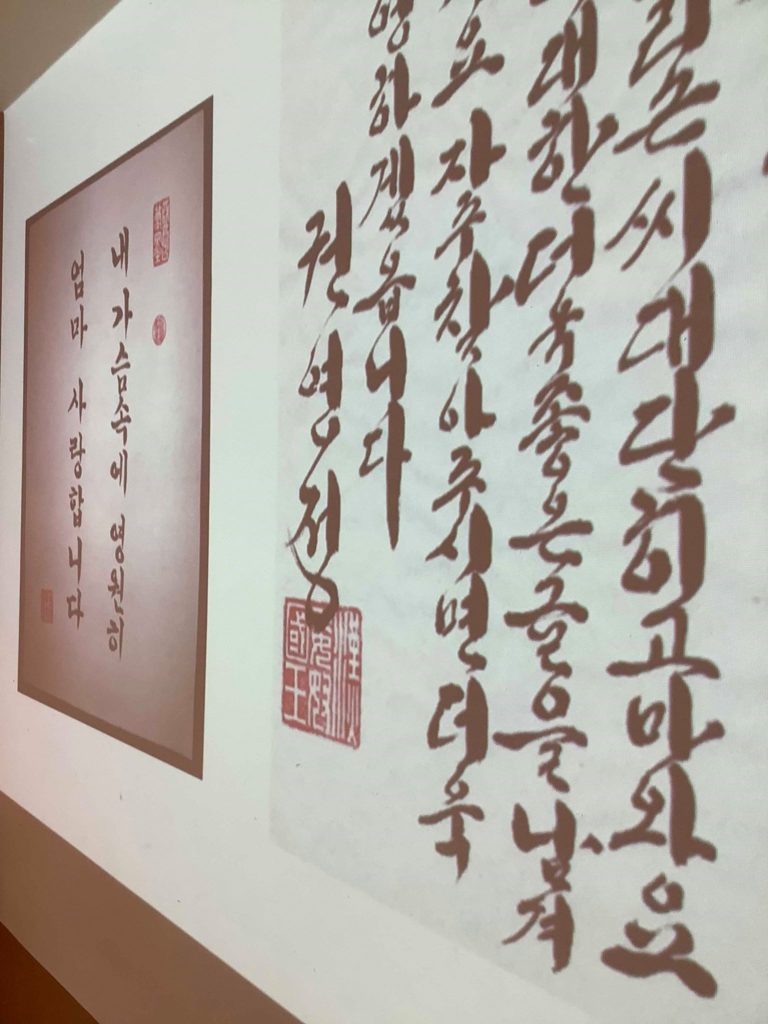 씨 대단히 고마와요
대한 더욱 좋은 글을 남겨
요 자주 찾아주시면 더욱
영하겠읍니다
권영정
내 가슴속에 영원히
엄마 사랑합니다